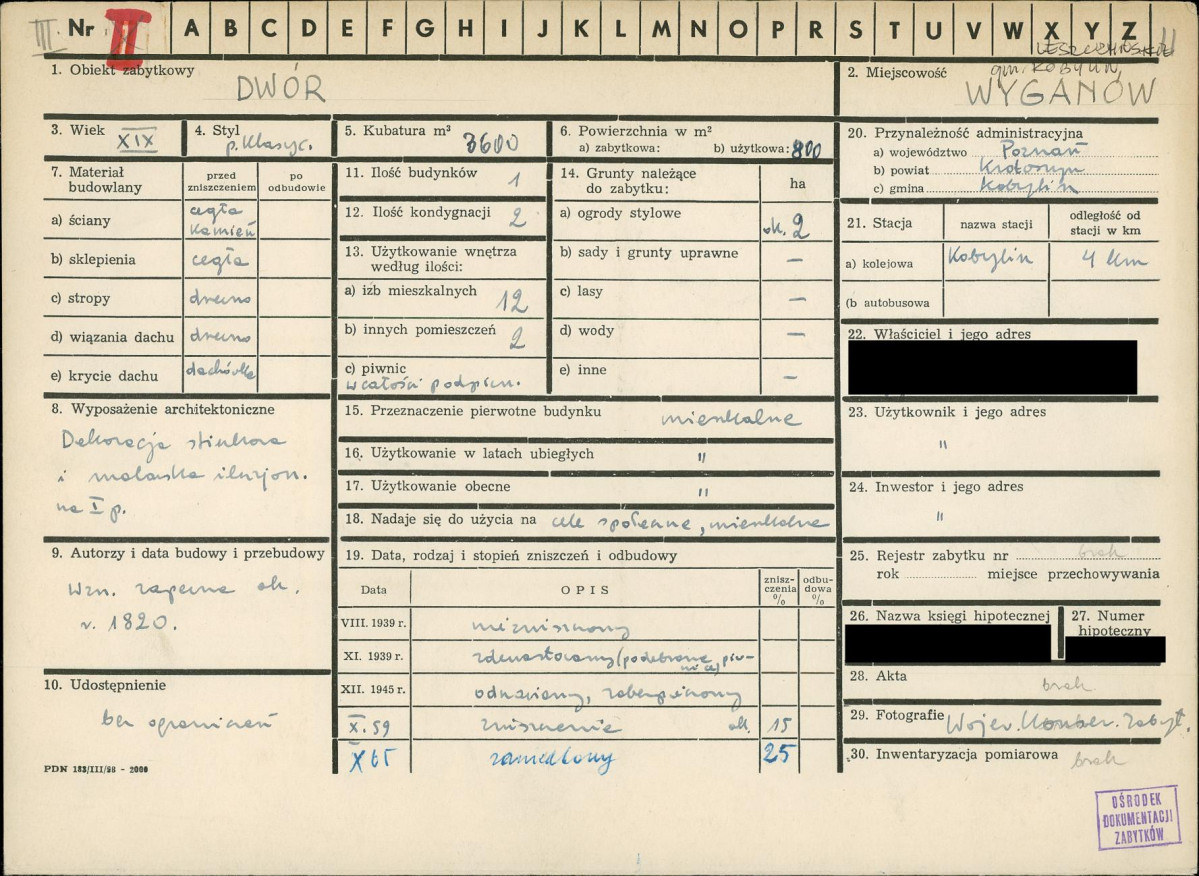 III Nr II A B C D E F G H I J K L M N O P R S T U V W X Y Z
LESZCZYŃSKIE
1. Obiekt zabytkowy
DWÓR
2. Miejscowość
gm. KOBYLIN,
WYGANÓW
3. Wiek XIX
4. Styl p. klasyc.
5. Kubatura m³ 3600
6. Powierzchnia w m²
a) zabytkowa: b) użytkowa: 800
7. Materiał budowlany
przed zniszczeniem
po odbudowie
a) ściany cegła kamień
b) sklepienia cegła
c) stropy drewno
d) wiązania dachu drewno
e) krycie dachu dachówka
8. Wyposażenie architektoniczne
Dekoracja stiukowa
i malarska iluzjon.
na I p.
9. Autorzy i data budowy i przebudowy
Wzn. zapewne ok.
r. 1820.
10. Udostępnienie
bez ograniczeń
PDN 183/III/58 - 2000
11. Ilość budynków 1
12. Ilość kondygnacji 2
13. Użytkowanie wnętrza
według ilości:
a) izb mieszkalnych 12
b) innych pomieszczeń 2
c) piwnic
w całości podpiwn.
14. Grunty należące
do zabytku:
ha
a) ogrody stylowe ok. 2
b) sady i grunty uprawne —
c) lasy —
d) wody —
e) inne —
15. Przeznaczenie pierwotne budynku mieszkalne
16. Użytkowanie w latach ubiegłych "
17. Użytkowanie obecne "
18. Nadaje się do użycia na cele społeczne, mieszkalne
19. Data, rodzaj i stopień zniszczeń i odbudowy
Data
OPIS
znisz-
czenia
%
odbu-
dowa
%
VIII. 1939 r. niezniszczony
XI. 1939 r. zdewastowany (podebrane piw-
nice)
XII. 1945 r. odnawiany, zabezpieczony
X. 59 zniszczenie ok. 15
X 65 zaniedbany 25
20. Przynależność administracyjna
a) województwo Poznań
b) powiat Krotoszyn
c) gmina Kobylin
21. Stacja
nazwa stacji
odległość od
stacji w km
a) kolejowa Kobylin 4 km
(b autobusowa
22. Właściciel i jego adres
23. Użytkownik i jego adres
"
24. Inwestor i jego adres
"
25. Rejestr zabytku nr brak
rok miejsce przechowywania
26. Nazwa księgi hipotecznej
27. Numer
hipoteczny
28. Akta brak
29. Fotografie Wojew. Konser. Zabyt.
30. Inwentaryzacja pomiarowa brak
OŚRODEK
DOKUMENTACJI
ZABYTKÓW